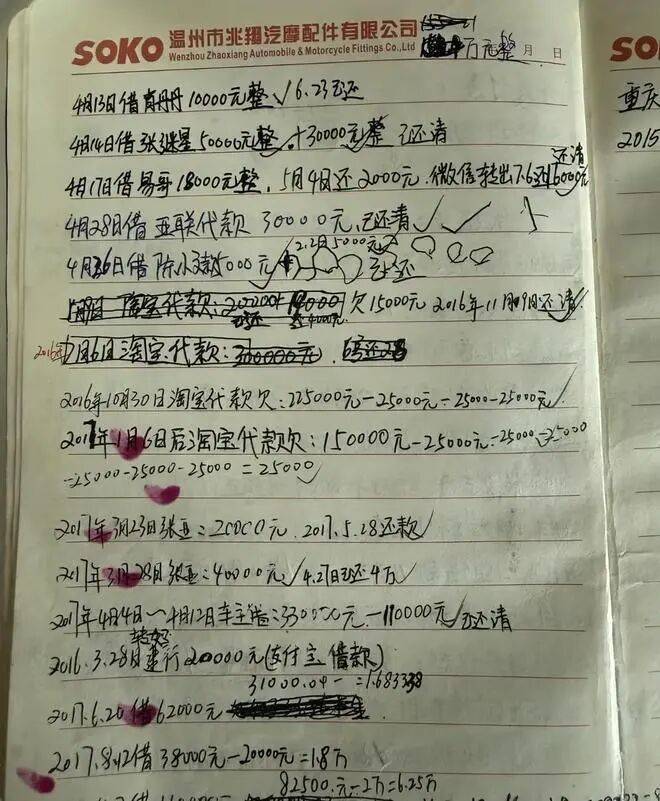 SOKO 温州市兆翔汽摩配件有限公司
Wenzhou Zhaoxiang Automobile & Motorcycle Fittings Co.,Ltd
万元整 月 日
4月13日借肖丹丹10000元整√6.23已还
4月14日借张继星50000元整√+30000元整 已还清
还清
4月17日借易哥18000元整,5月4日还2000元.微信转出7.6还16000元
4月28日借亚联代款30000元,已还清√√
2.2日5000元
4月26日借陈小 000元 已还
淘宝代款:200000+ 欠15000元 2016年11月19日还清
2016年7月6日淘宝代款:300000元.
2016年10月30日淘宝代款欠:225000元-25000元-25000-25000元√
2017年1月6日后淘宝代款欠:150000元-25000元-25000-25000
-25000-25000-25000=25000√
2017年3月23日张亚:20000元.2017.5.28还款√
2017年3月28日张亚:40000元√4.27日已还4万
2017年4月4日~4月12日车主借:330000元-110000元√已还清
2016.3.28日建行20000元(支付宝借款)
31000.04-=1.683338
2017.6.20借62000元
2017.8.12借38000元-20000元=1.8万
82500.元-2万=6.25万
SO
重庆
2015